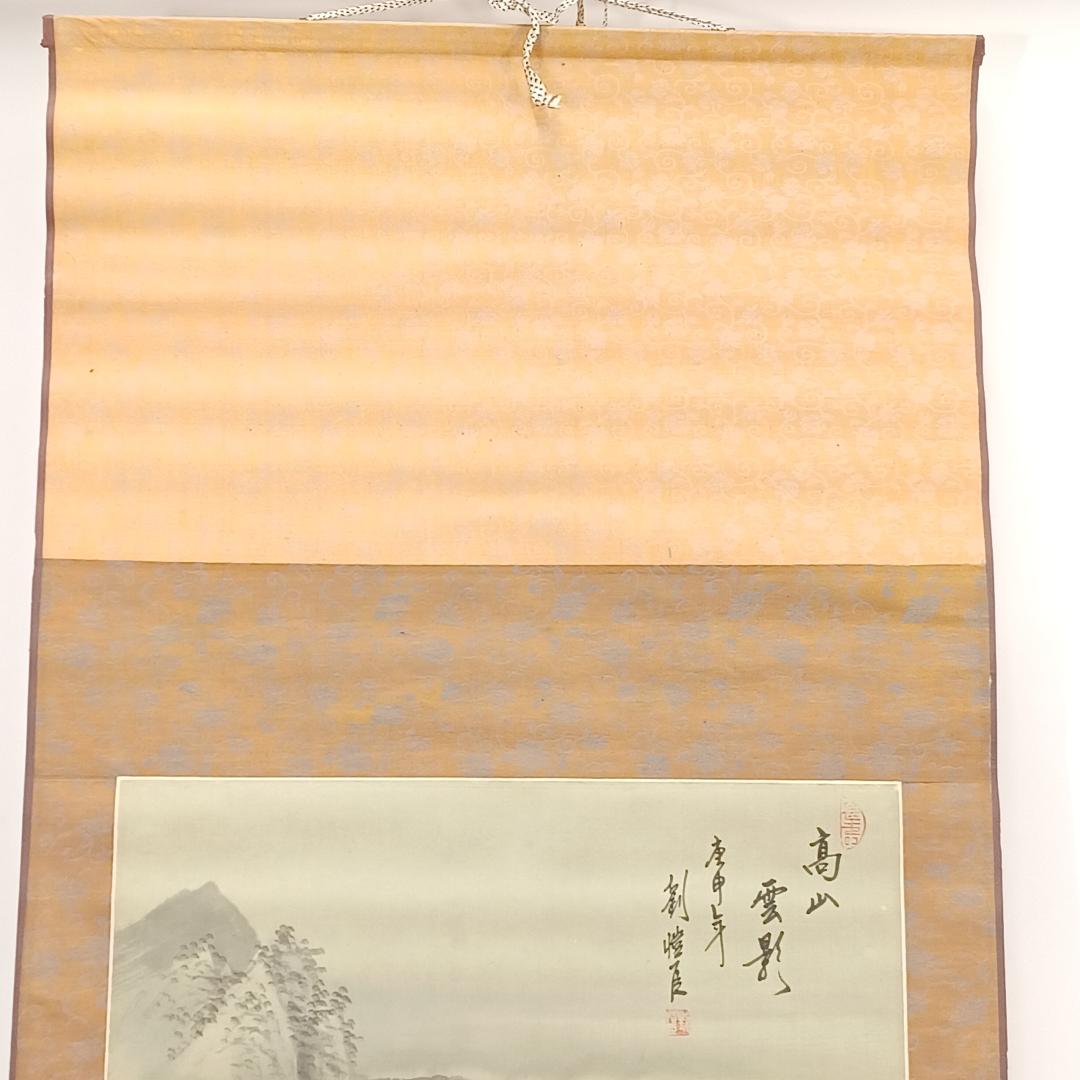 高山
雲影
庚申年
劉愷辰